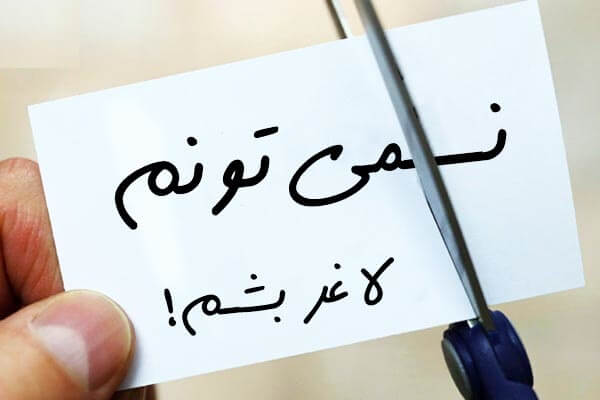 نمی تونم
لاغر بشم!